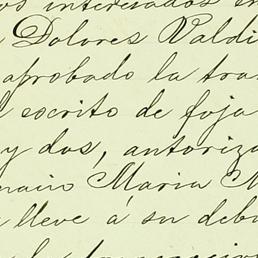 os interesados en
Dolores Valdi
aprobado la tra
escrito de foja
y dos, autoriza
nacio Maria M
lleve á su debi